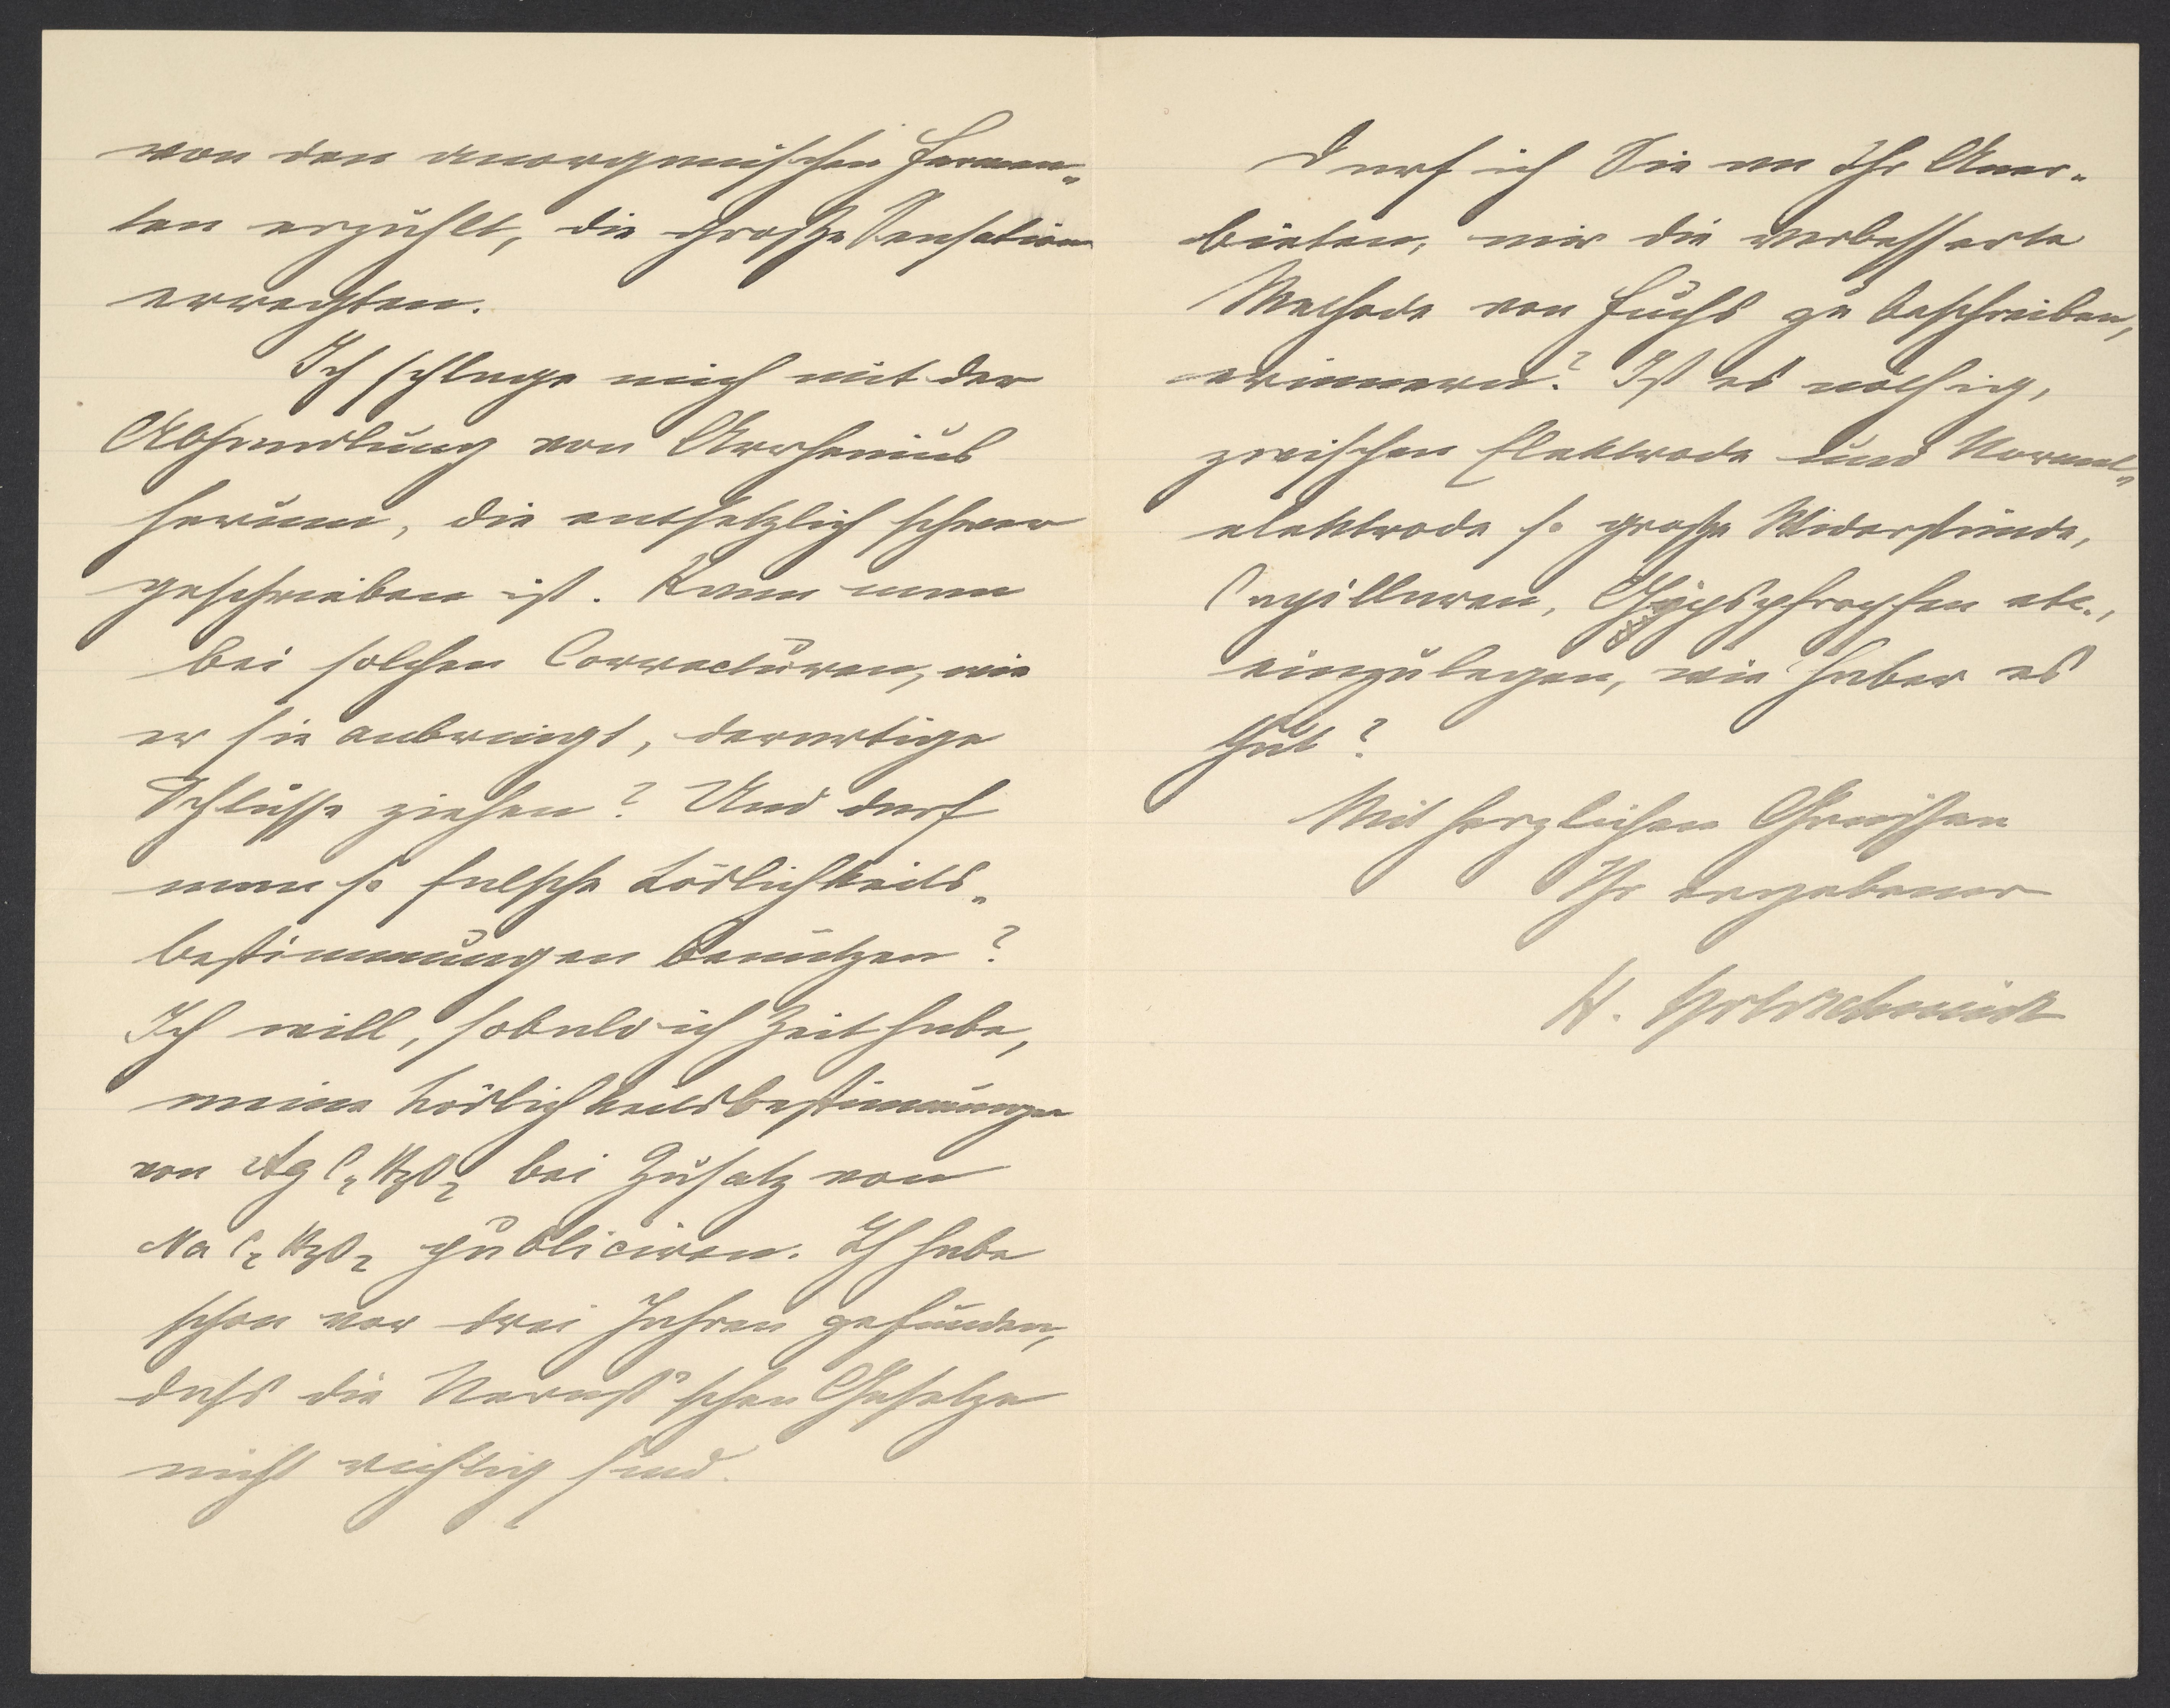 von den anorganischen Fermen-
ten erzählt, die große Sensation
erregten.
Ich schlage mich mit der
Abhandlung von Arrhenius
herum, die entsetzlich schwer
geschrieben ist. Kann man
bei solchen Correcturen, wie
er sie anbringt, derartige
Schlüsse ziehen? Und darf
man so falsche Löslichkeits-
bestimmungen benützen?
Ich will, sobald ich Zeit habe,
meine Löslichkeitsbestimmungen
von Ag C2H3O2 bei Zusatz von
Na C2H3O2 publiciren. Ich habe
schon vor drei Jahren gefunden,
dass die Nernst'schen Gesetze
nicht richtig sind.
Darf ich Sie an Ihr Aner-
bieten, mir die verbesserte
Methode von Fuchs zu beschreiben,
erinnern? Ist es nöthig,
zwischen Elektrode und Normal-
elektrode so große Widerstände,
Capillaren, Gypspfropfen etc.,
einzulegen, wie Haber es
thut?
Mit herzlichen Grüssen
Ihr ergebener
H. Goldschmidt